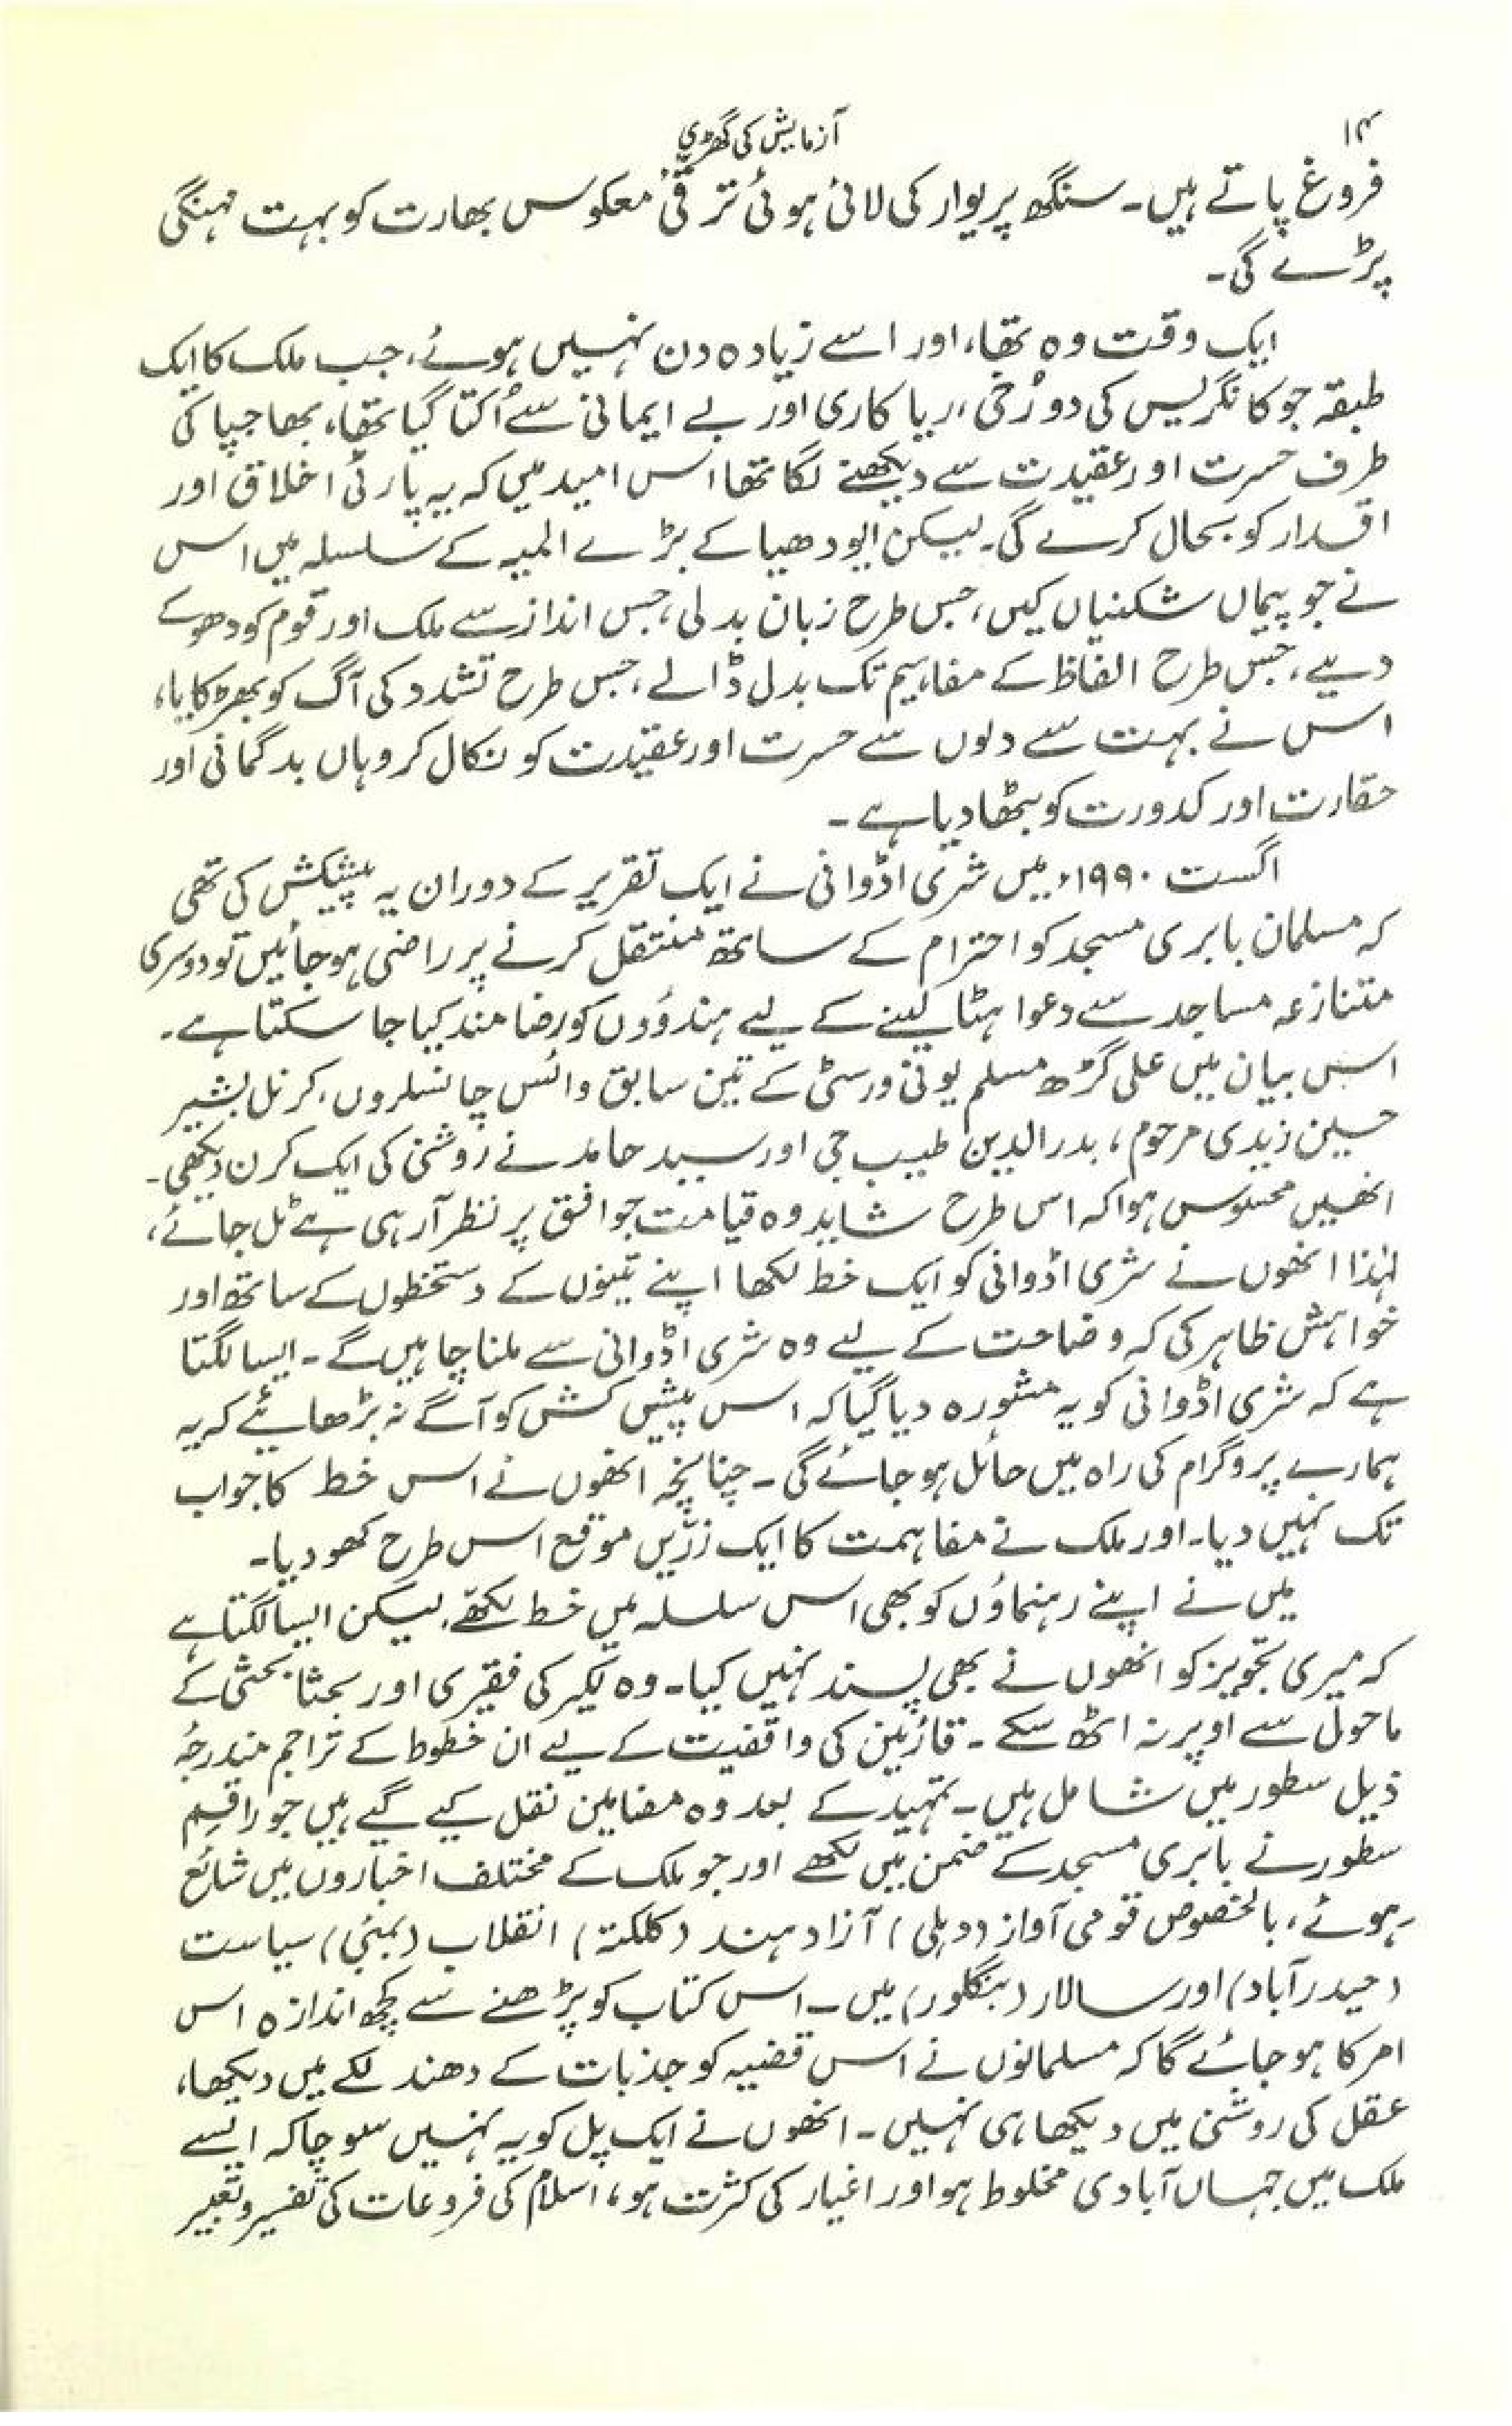 ۱۴
آزمایش کی گھڑی
فروغ پاتے ہیں۔ سنگھ پریوار کی لائی ہوئی ترقیٔ معکوس بھارت کو بہت مہنگی
پڑے گی۔
ایک وقت وہ تھا، اور اسے زیادہ دن نہیں ہوئے، جب ملک کا ایک
طبقہ جو کانگریس کی دو رُخی، ریا کاری اور بے ایمانی سے اُکتا گیا تھا، بھاجپا کی
طرف حسرت اور عقیدت سے دیکھنے لگا تھا اس امید میں کہ یہ پارٹی اخلاق اور
اقدار کو بحال کرے گی۔ لیکن ایودھیا کے بڑے المیہ کے سلسلہ میں اس
نے جو پیماں شکنیاں کیں، جس طرح زبان بدلی، جس انداز سے ملک اور قوم کو دھوکے
دیے، جس طرح الفاظ کے مفاہیم تک بدل ڈالے، جس طرح تشدد کی آگ کو بھڑکایا،
اس نے بہت سے دلوں سے حسرت اور عقیدت کو نکال کر وہاں بدگمانی اور
حقارت اور کدورت کو بٹھا دیا ہے۔
اگست ۱۹۹۰ء میں شری اڈوانی نے ایک تقریر کے دوران یہ پیشکش کی تھی
کہ مسلمان بابری مسجد کو احترام کے ساتھ منتقل کرنے پر راضی ہو جائیں تو دوسری
متنازعہ مساجد سے دعوا ہٹا لینے کے لیے ہندوؤں کو رضامند کیا جا سکتا ہے۔
اس بیان میں علی گڑھ مسلم یونی ورسٹی کے تین سابق وائس چانسلروں، کرنل بشیر
حسین زیدی مرحوم، بدرالدین طیب جی اور سید حامد نے روشنی کی ایک کرن دیکھی۔
انھیں محسوس ہوا کہ اس طرح شاید وہ قیامت جو افق پر نظر آ رہی ہے ٹل جائے،
لہٰذا انھوں نے شری اڈوانی کو ایک خط لکھا اپنے تینوں کے دستخطوں کے ساتھ اور
خواہش ظاہر کی کہ وضاحت کے لیے وہ شری اڈوانی سے ملنا چاہیں گے۔ ایسا لگتا
ہے کہ شری اڈوانی کو یہ مشورہ دیا گیا کہ اس پیش کش کو آگے نہ بڑھائیے کہ یہ
ہمارے پروگرام کی راہ میں حائل ہو جائے گی۔ چنانچہ انھوں نے اس خط کا جواب
تک نہیں دیا۔ اور ملک نے مفاہمت کا ایک زرّیں موقع اس طرح کھو دیا۔
میں نے اپنے رہنماؤں کو بھی اس سلسلہ میں خط لکھے، لیکن ایسا لگتا ہے
کہ میری تجویز کو انھوں نے بھی پسند نہیں کیا۔ وہ لکیر کی فقیری اور بحثا بحثی کے
ماحول سے اوپر نہ اٹھ سکے۔ قارئین کی واقفیت کے لیے ان خطوط کے تراجم مندرجۂ
ذیل سطور میں شامل ہیں۔ تمہید کے بعد وہ مضامین نقل کیے گیے ہیں جو راقم
سطور نے بابری مسجد کے ضمن میں لکھے اور جو ملک کے مختلف اخباروں میں شائع
ہوئے، بالخصوص قومی آواز (دہلی) آزاد ہند (کلکتہ) انقلاب (بمبئی) سیاست
(حیدرآباد) اور سالار (بنگلور) میں۔ اس کتاب کو پڑھنے سے کچھ اندازہ اس
امر کا ہو جائے گا کہ مسلمانوں نے اس قضیہ کو جذبات کے دھندلکے میں دیکھا،
عقل کی روشنی میں دیکھا ہی نہیں۔ انھوں نے ایک پل کو یہ نہیں سوچا کہ ایسے
ملک میں جہاں آبادی مخلوط ہو اور اغیار کی کثرت ہو، اسلام کی فروعات کی تفسیر و تعبیر